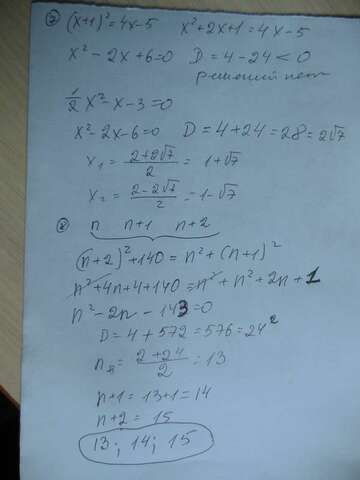 ⑦ (x+1)² = 4x-5 x²+2x+1 = 4x-5
x² - 2x + 6 = 0 D = 4 - 24 < 0
решений нет
1/2 x² - x - 3 = 0
x² - 2x - 6 = 0 D = 4 + 24 = 28 = 2√7
x₁ = (2+2√7)/2 = 1+√7
x₂ = (2-2√7)/2 = 1-√7
⑧ n n+1 n+2
(n+2)² + 140 = n² + (n+1)²
n² + 4n + 4 + 140 = n² + n² + 2n + 1
n² - 2n - 143 = 0
D = 4 + 572 = 576 = 24²
n₁ = (2+24)/2 = 13
n+1 = 13+1 = 14
n+2 = 15
13; 14; 15